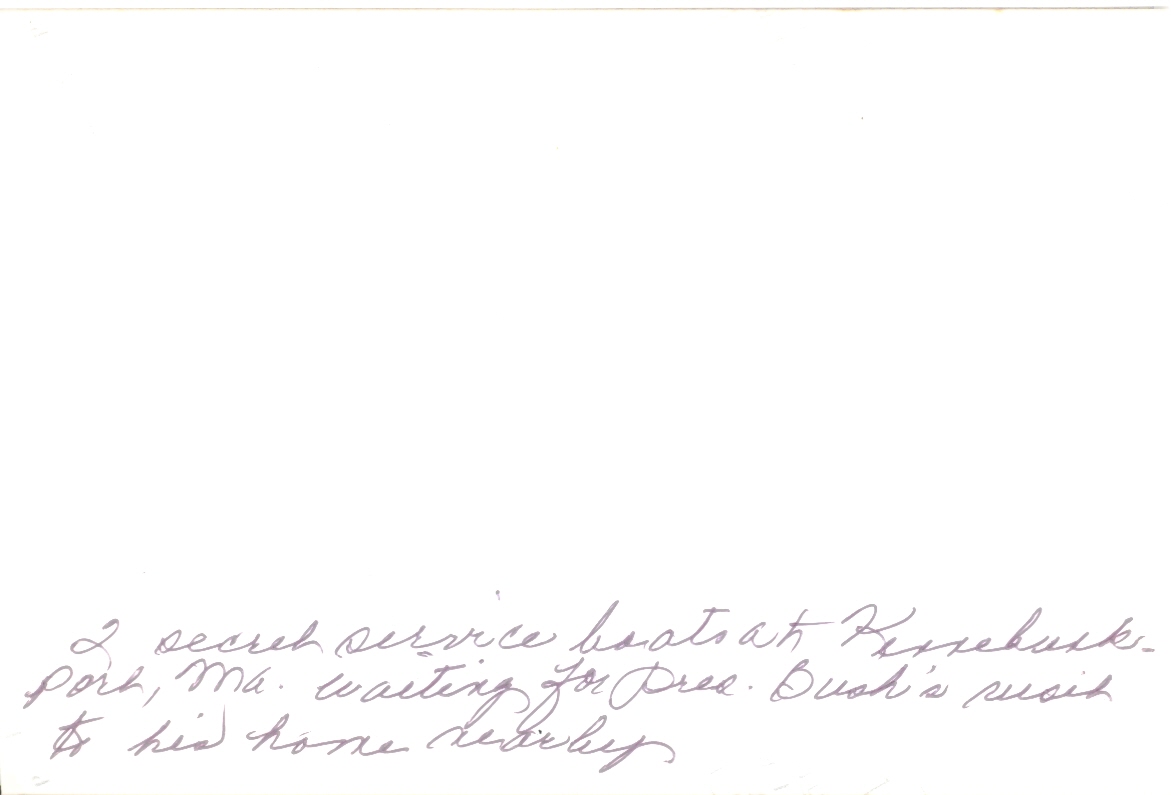 2 secret service boats at Kennebunk-
port, Ma. waiting for Pres. Bush's visit
to his home nearby